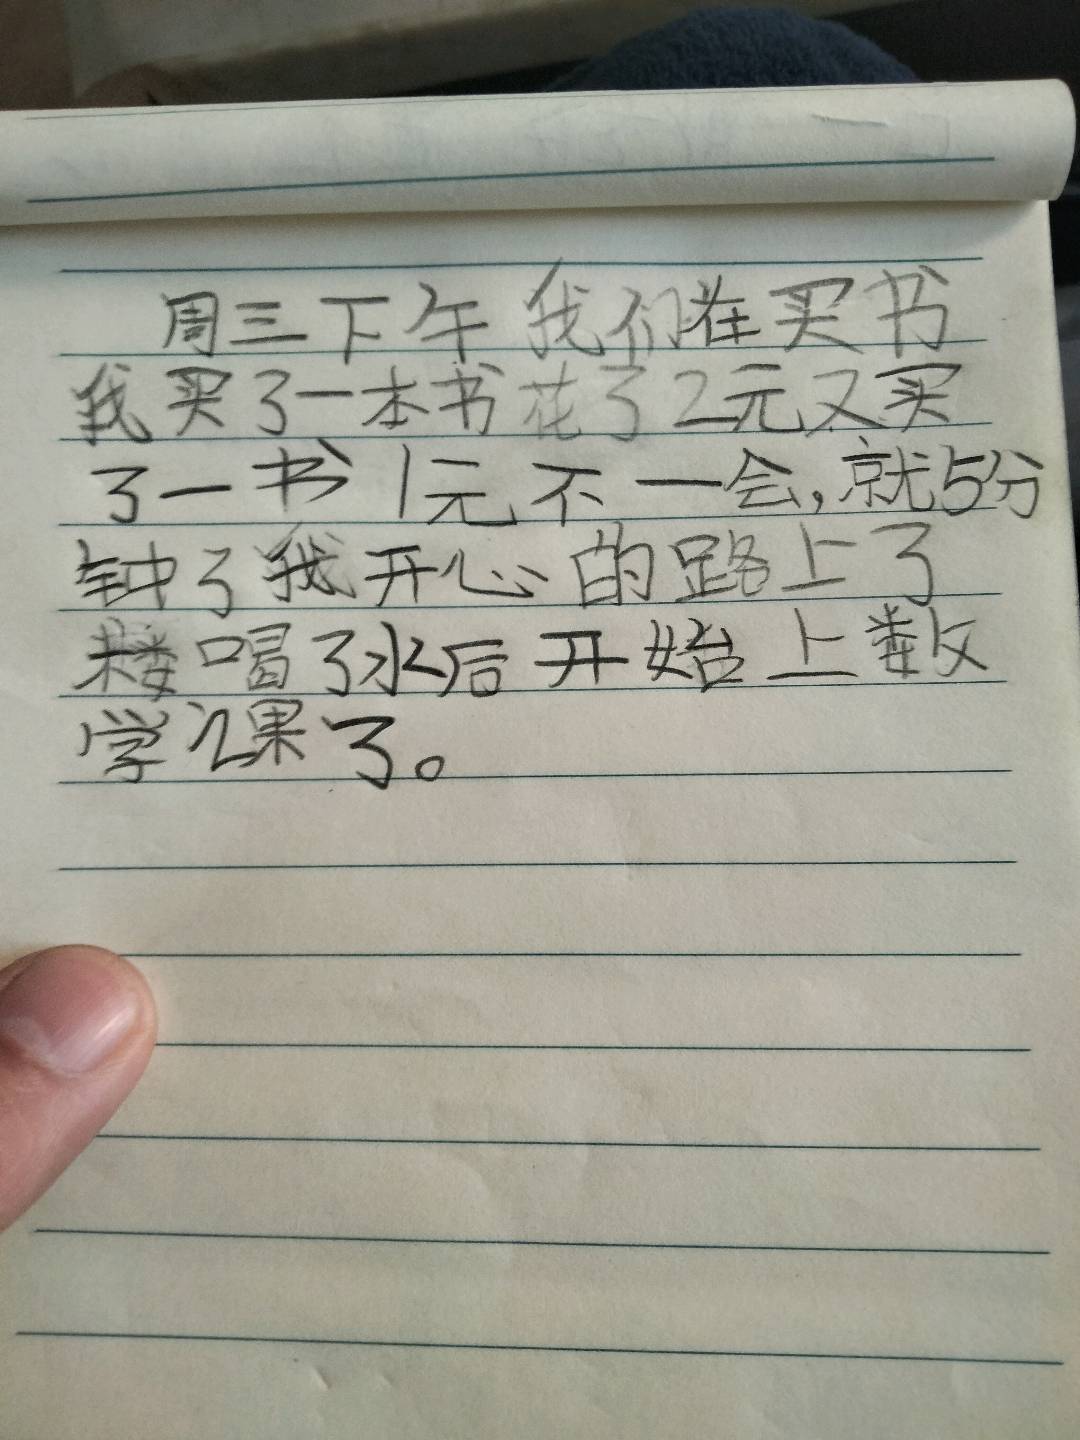 周三下午我们在买书
我买了一本书花了2元又买
了一书1元不一会,就5分
钟了我开心的路上了
楼喝了水后开始上数
学课了。